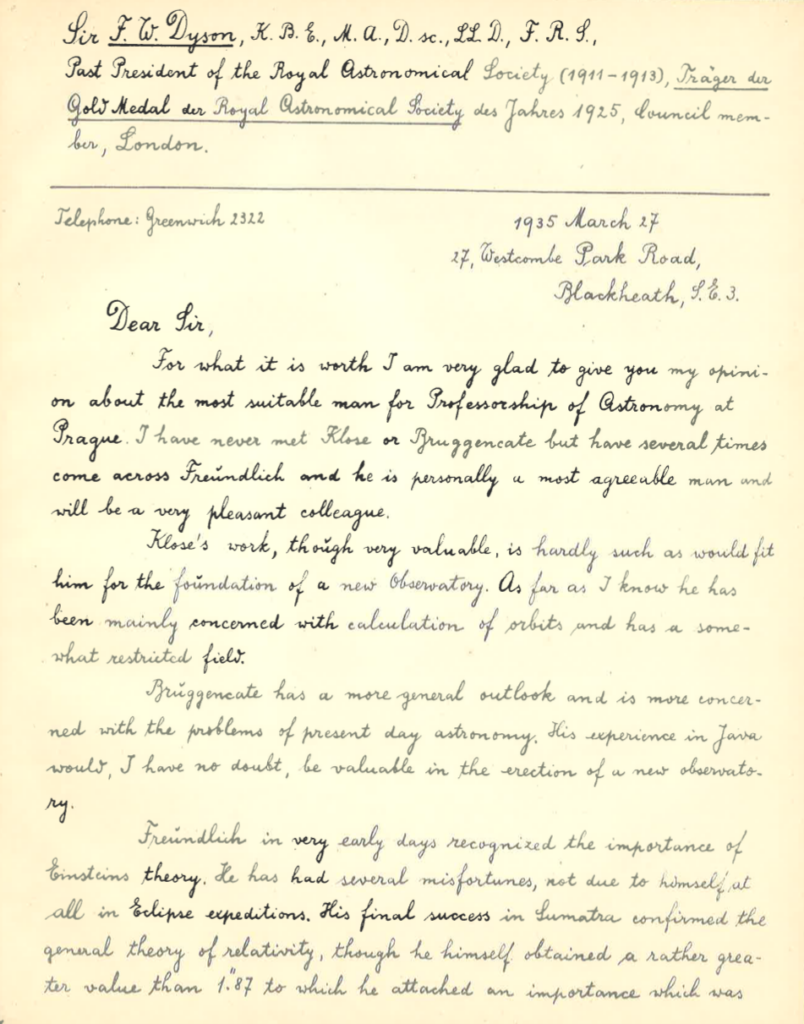 Sir F. W. Dyson, K. B. E., M. A., D. sc., LL. D., F. R. S.,
Past President of the Royal Astronomical Society (1911-1913), Träger der
Gold Medal der Royal Astronomical Society des Jahres 1925, Council mem-
ber, London.
Telephone: Greenwich 2322
1935 March 27
27, Westcombe Park Road,
Blackheath, S. E. 3.
Dear Sir,
For what it is worth I am very glad to give you my opini-
on about the most suitable man for Professorship of Astronomy at
Prague. I have never met Klose or Bruggencate but have several times
come across Freŭndlich and he is personally a most agreeable man and
will be a very pleasant colleague.
Klose's work, thoŭgh very valuable, is hardly such as would fit
him for the foŭndation of a new Observatory. As far as I know he has
been mainly concerned with calculation of orbits and has a some-
what restricted field.
Brŭggencate has a more general outlook and is more concer-
ned with the problems of present day astronomy. His experience in Java
would, I have no doubt, be valuable in the erection of a new observato-
ry.
Freŭndlich in very early days recognized the importance of
Einsteins theory. He has had several misfortunes, not due to himself at
all in Eclipse expeditions. His final success in Sumatra confirmed the
general theory of relativity, though he himself obtained a rather grea-
ter value than 1."87 to which he attached an importance which was